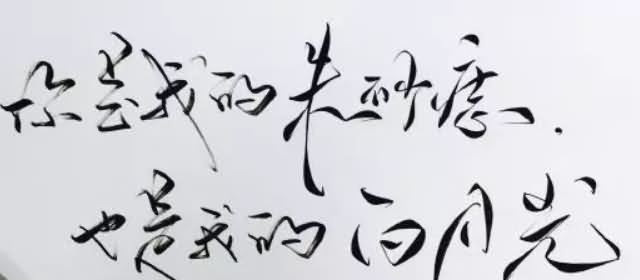 你是我的朱砂痣.
也是我的白月光